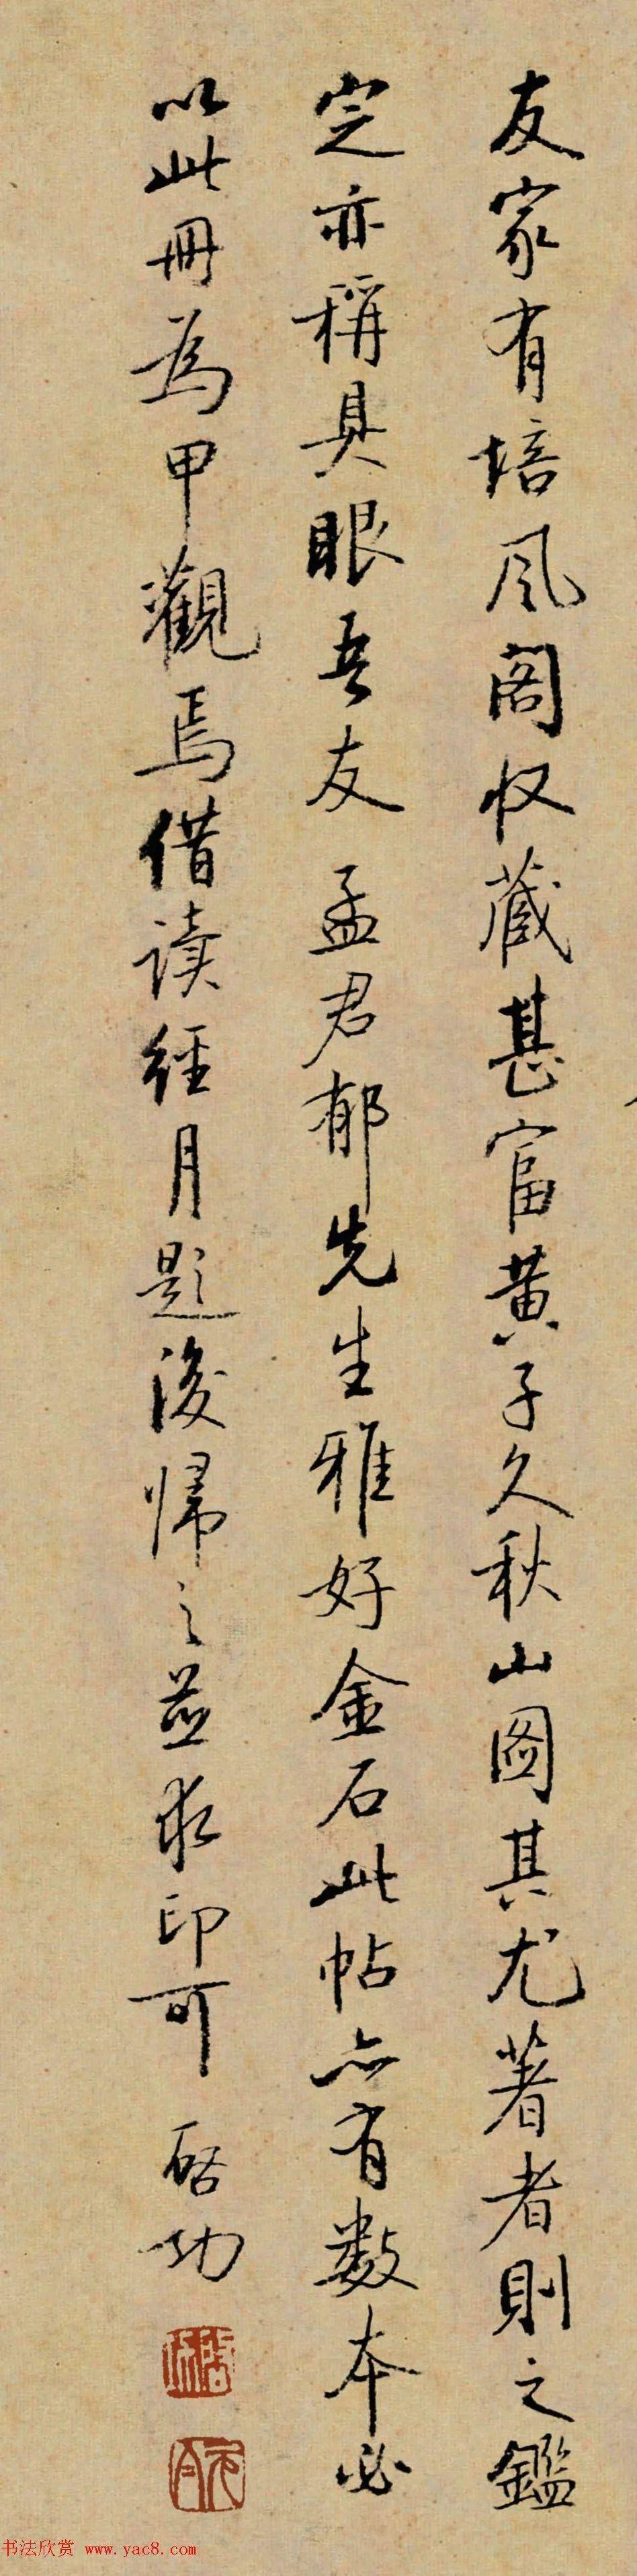 友家有培风阁收藏甚富黄子久秋山图其尤著者則之鑑
定亦稱具眼吾友孟君郁先生雅好金石此帖亦有數本必
以此冊為甲觀焉借读經月题後歸之並求印可 啓功
啓功
元白
书法欣赏 www.yac8.com